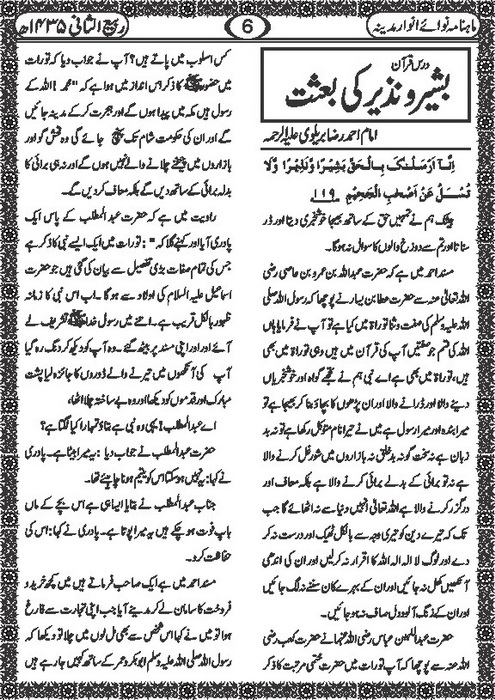 ماہنامہ نوائے انوار مدینہ
6
ربیع الثانی ۱۴۳۵ھ
درس قرآن
بشیر و نذیر کی بعثت
امام احمد رضا بریلوی علیہ الرحمہ
اِنَّا اَرْسَلْنٰکَ بِالْحَقِّ بَشِیْرًا وَّنَذِیْرًا وَّلَا
تُسْئَلُ عَنْ اَصْحٰبِ الْجَحِیْمِ ۱۱۹
بیشک ہم نے تمہیں حق کے ساتھ بھیجا خوشخبری دیتا اور ڈر
سناتا اور تم سے دوزخ والوں کا سوال نہ ہوگا۔
مسند احمد میں ہے کہ حضرت عبداللہ بن عمرو بن عاصی رضی
اللہ تعالیٰ عنہ سے حضرت عطا بن یسار نے پوچھا کہ رسول اللہ صلی
اللہ علیہ وسلم کی صفت و ثنا توراۃ میں کیا ہے تو آپ نے فرمایا ہاں
اللہ کی قسم جو صفتیں آپ کی قرآن میں ہیں وہی توراۃ میں بھی
ہیں، توراۃ میں بھی ہے اے نبی ہم نے تجھے گواہ اور خوشخبریاں
دینے والا اور ڈرانے والا اور ان پڑھوں کا بچاؤ بنا کر بھیجا ہے تو
میرا بندہ اور میرا رسول ہے میں نے تیرا نام متوکل رکھا ہے تو نہ بد
زبان ہے نہ سخت گو نہ بدخلق نہ بازاروں میں شور غل کرنے والا
ہے نہ تو برائی کے بدلے برائی کرنے والا ہے بلکہ معاف اور
درگزر کرنے والا ہے اللہ تعالیٰ انہیں دنیا سے نہ اٹھائے گا جب
تک کہ تیرے دین کو تیری وجہ سے بالکل ٹھیک اور درست نہ کر
دے اور لوگ لا الہ الا اللہ کا اقرار نہ کرلیں اور ان کی اندھی
آنکھیں کھل نہ جائیں اور ان کے بہرے کان سننے نہ لگ جائیں
اور ان کے زنگ آلود دل صاف نہ ہو جائیں۔
حضرت عبد اللہ بن عباس رضی اللہ عنہما نے کعب رضی
اللہ عنہ سے پوچھا کہ آپ تورات میں حضرت محمد کا ذکر
کس اسلوب میں پاتے ہیں؟ آپ نے جواب دیا کہ تورات
میں حضور ﷺ کا ذکر اس انداز میں ہوا ہے کہ "محمد! اللہ کے
رسول ہیں مکہ میں پیدا ہوں گے اور ہجرت کر کے مدینہ جائیں
گے اور ان کی حکومت شام تک پہنچ جائے گی وہ فحش گو اور
بازاروں میں چیخنے چلانے والے نہیں ہوں گے اور نہ ہی برائی کا
بدلہ برائی کے ساتھ دیں گے بلکہ معاف کر دیں گے۔
روایت میں ہے کہ حضرت عبد المطلب کے پاس ایک
پادری آیا اور کہنے لگا کہ": تورات میں ایک ایسے نبی کا ذکر ہے
جس کی تمام صفات بڑی تفصیل سے بیان کی گئی ہیں جو حضرت
اسماعیل علیہ السلام کی اولاد سے ہوگا۔ اب اس نبی کا زمانہ
ظہور بالکل قریب ہے۔ اتنے میں رسول خدا ﷺ تشریف لے
آئے اور اور اپنی مسند پر بیٹھ گئے۔ وہ آپ کو دیکھ کر دنگ رہ گیا
آپ کی آنکھوں میں تیرنے والے ڈوروں کا جائزہ لیا پشت
مبارک اور قدموں کو دیکھا اور وہ بے ساختہ چلا اٹھا،
اے عبد المطلب! یہی وہ نبی ہے بتاؤ تمہارا کیا لگتا ہے؟
حضرت عبد المطلب نے جواب دیا: یہ میرا بیٹا ہے۔ پادری
نے کہا: یہ نہیں ہو سکتا اس کو یتیم ہونا چاہئے تھا۔
جناب عبد المطلب نے بتایا ایسا ہی ہے اس بچے کے ماں
باپ فوت ہو چکے ہیں یہ میرا پوتا ہے۔ پادری نے کہا: اس کی
حفاظت کرو۔
مسند احمد میں ہے ایک صاحب فرماتے ہیں میں کچھ خرید و
فروخت کا سامان لے کر مدینے آیا جب اپنی تجارت سے فارغ
ہوا تو میں نے کہا اس شخص سے بھی مل لوں میں چلا تو دیکھا کہ
رسول اللہ صلی اللہ علیہ وسلم ابوبکر و عمر کے ساتھ کہیں جا رہے ہیں